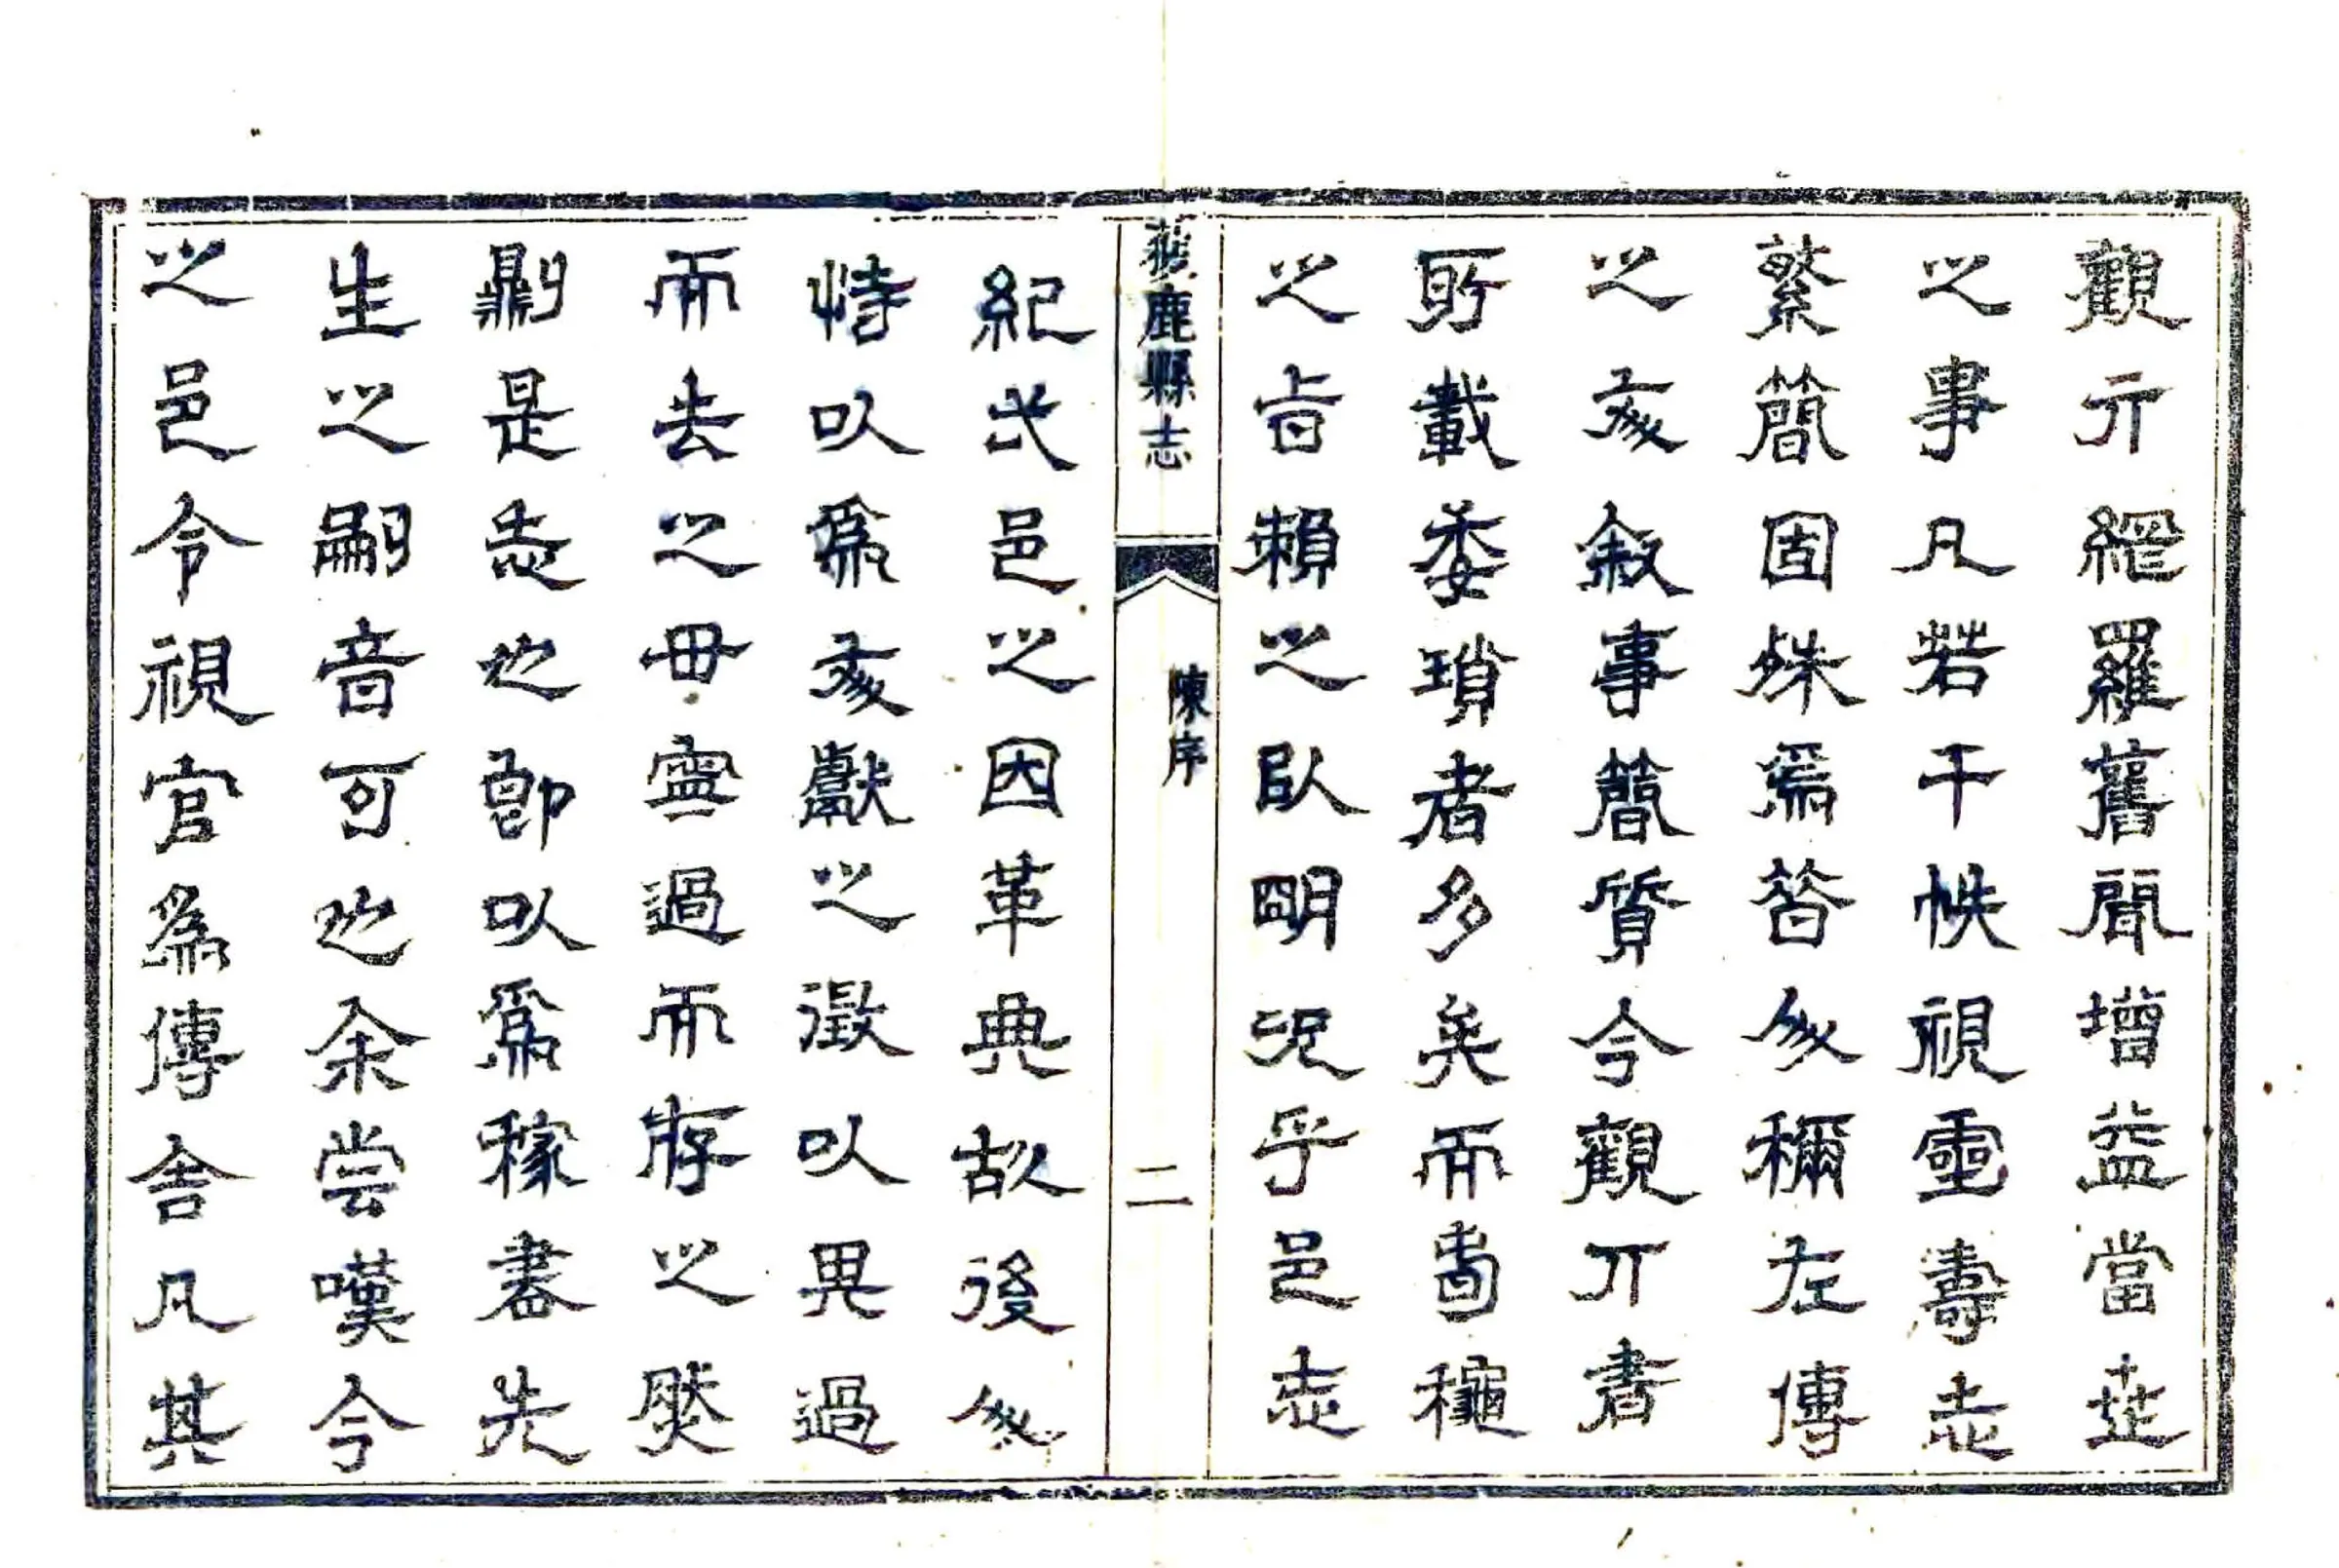 觀亓網羅舊聞增益當世
之事凡若干帙視靈壽志
繁簡固殊焉昔人稱左傳
之文敘事簡質今觀亓書
所載委瑣者多矣而旾穐
之旨賴之以朙況乎邑志
獲鹿縣志
陳序
二
紀弌邑之因革典故後人
恃以為文獻之徵以異過
而去之毋寧過而存之然
則是志也即以為稼書先
生之嗣音可也余嘗嘆今
之邑令視官為傳舍凡其